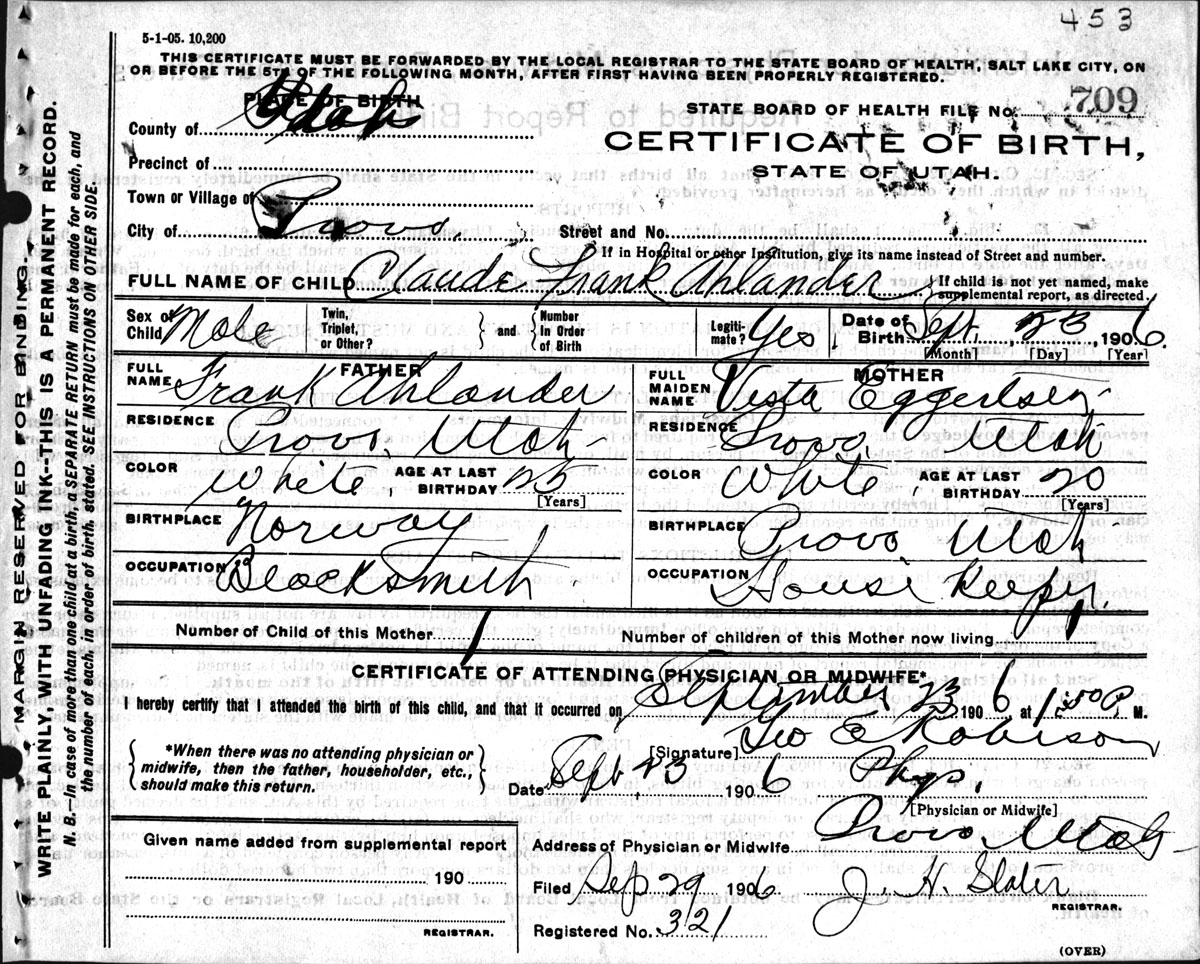 453
5-1-05. 10,200
THIS CERTIFICATE MUST BE FORWARDED BY THE LOCAL REGISTRAR TO THE STATE BOARD OF HEALTH, SALT LAKE CITY, ON
OR BEFORE THE 5TH OF THE FOLLOWING MONTH, AFTER FIRST HAVING BEEN PROPERLY REGISTERED.
PLACE OF BIRTH
STATE BOARD OF HEALTH FILE No. 709
County of Utah
CERTIFICATE OF BIRTH,
Precinct of
STATE OF UTAH.
Town or Village of
City of Provo. Street and No.
If in Hospital or other Institution, give its name instead of Street and number.
FULL NAME OF CHILD Claude Frank Ahlander { If child is not yet named, make
supplemental report, as directed.
Sex of Child Male Twin, Triplet, or Other? } and { Number in Order of Birth Legiti-mate? Yes. Date of Birth Sept. 23, 1906
[Month] [Day] [Year]
FATHER MOTHER
FULL NAME Frank Ahlander FULL MAIDEN NAME Vesta Eggertsen
RESIDENCE Provo, Utah RESIDENCE Provo, Utah
COLOR White, AGE AT LAST BIRTHDAY 25 [Years] COLOR White, AGE AT LAST BIRTHDAY 20 [Years]
BIRTHPLACE Norway BIRTHPLACE Provo, Utah
OCCUPATION Blacksmith OCCUPATION House Keepr.
Number of Child of this Mother 1 Number of children of this Mother now living 1
CERTIFICATE OF ATTENDING PHYSICIAN OR MIDWIFE*
I hereby certify that I attended the birth of this child, and that it occurred on September 23 1906 at 1:50 P. M.
[Signature] Geo E Robison
{ *When there was no attending physician or
midwife, then the father, householder, etc.,
should make this return. }
Date Sept 23 1906 Phys,
[Physician or Midwife]
Given name added from supplemental report
190
REGISTRAR.
Address of Physician or Midwife Provo Utah
Filed Sep 29 1906 J. H. Slater
REGISTRAR.
Registered No. 321
(OVER)
MARGIN RESERVED FOR BINDING.
WRITE PLAINLY, WITH UNFADING INK--THIS IS A PERMANENT RECORD.
N. B. In case of more than one child at a birth, a SEPARATE RETURN must be made for each, and
the number of each, in order of birth, stated. SEE INSTRUCTIONS ON OTHER SIDE.